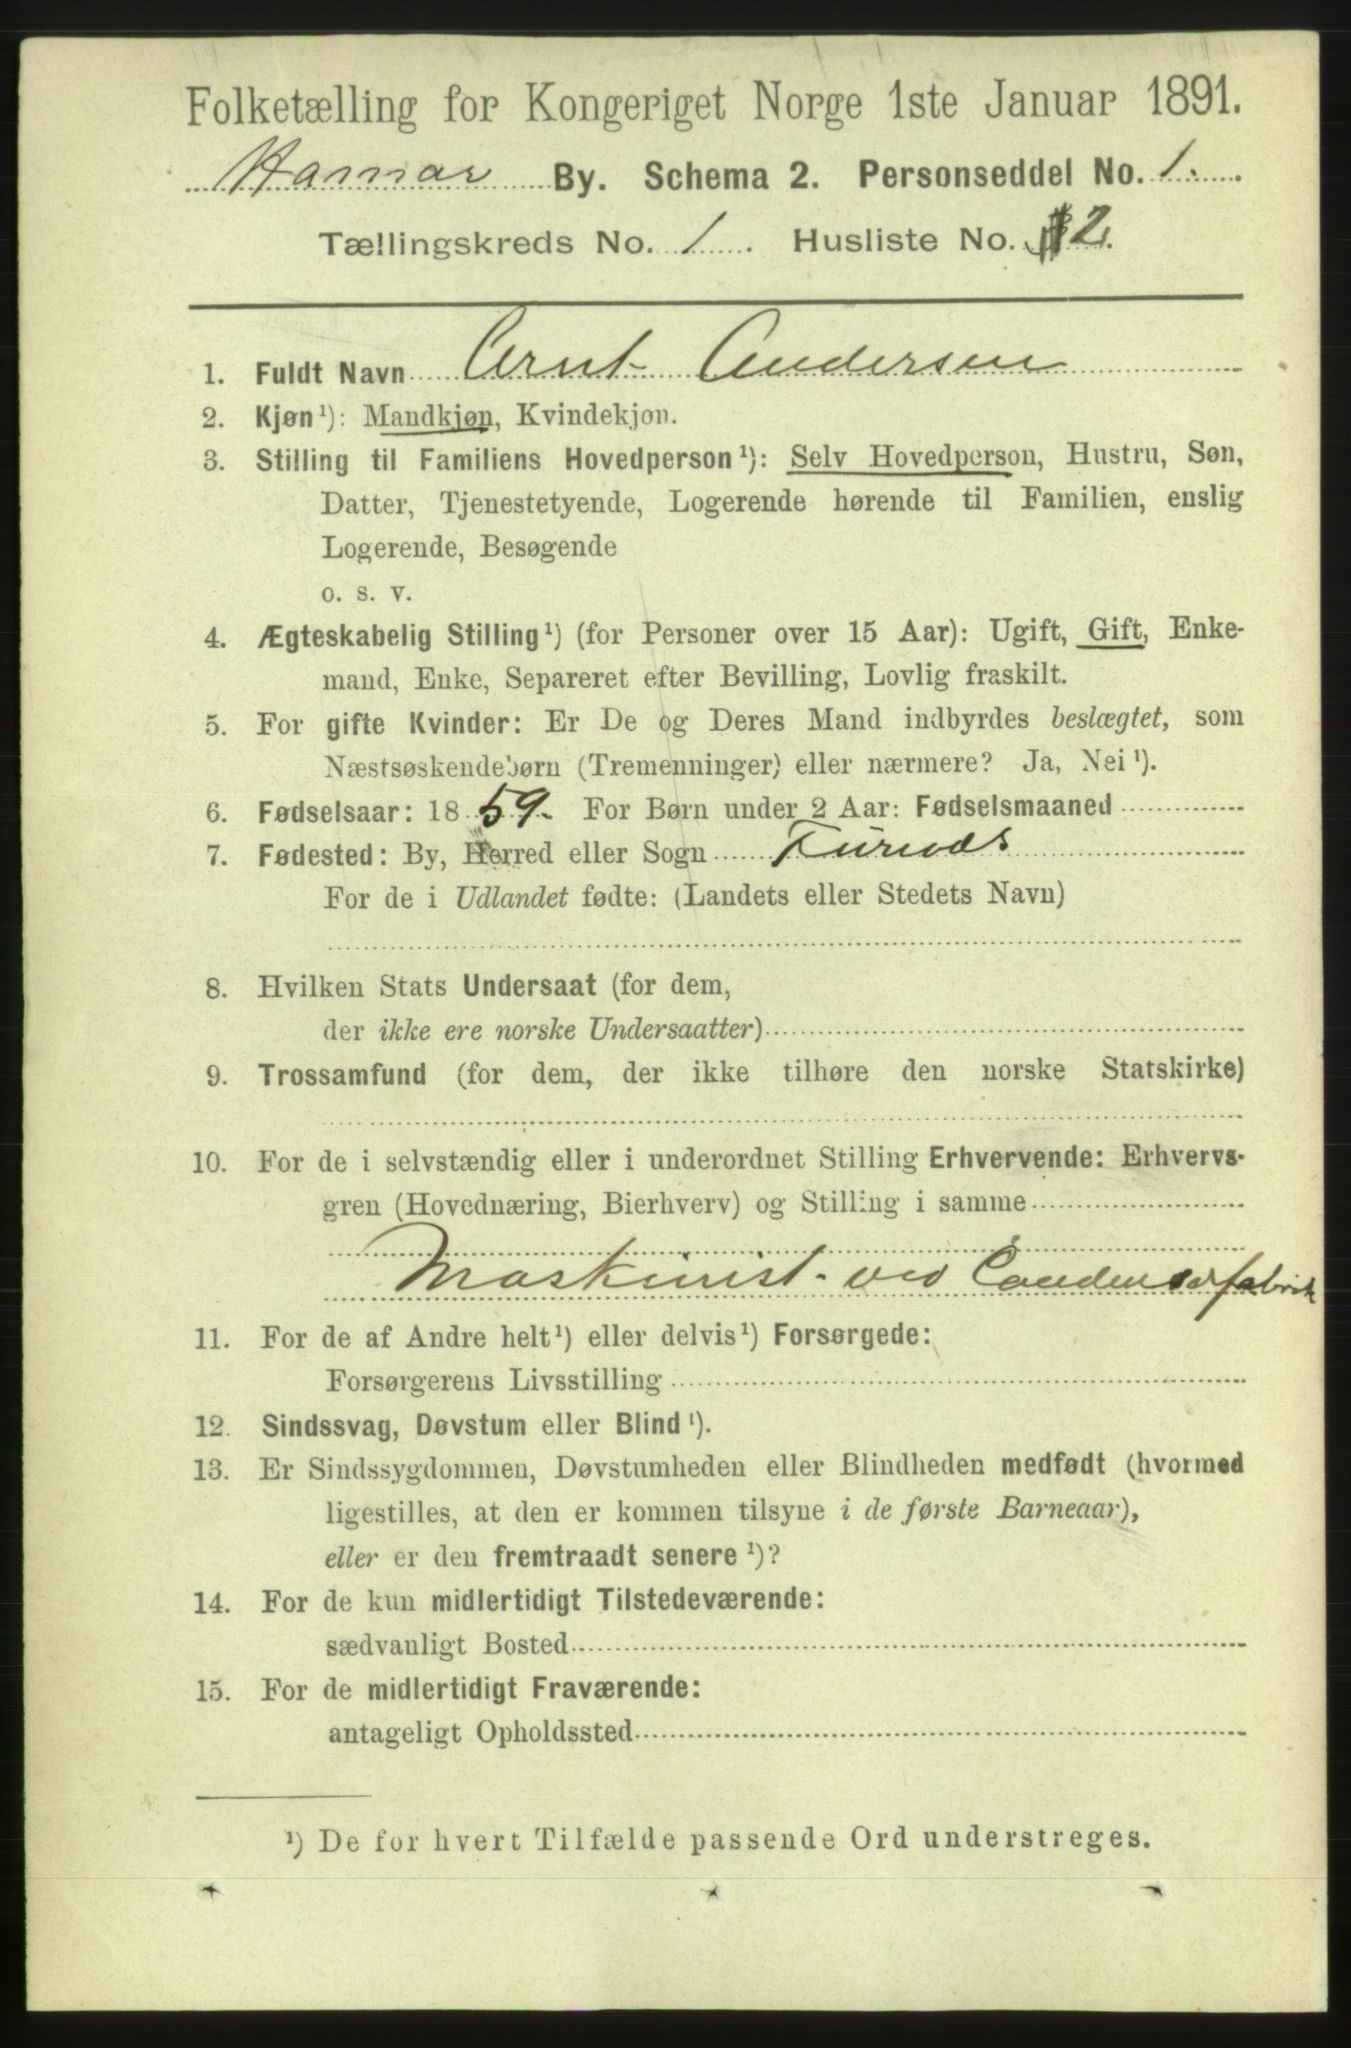 Folketælling for Kongeriget Norge 1ste Januar 1891.
Hamar By. Schema 2. Personseddel No. 1.
Tællingskreds No. 1. Husliste No. 12.
1. Fuldt Navn Arnt Andersen
2. Kjøn¹): Mandkjøn, Kvindekjøn.
3. Stilling til Familiens Hovedperson¹): Selv Hovedperson, Hustru, Søn,
Datter, Tjenestetyende, Logerende hørende til Familien, enslig
Logerende, Besøgende
o. s. v.
4. Ægteskabelig Stilling¹) (for Personer over 15 Aar): Ugift, Gift, Enke-
mand, Enke, Separeret efter Bevilling, Lovlig fraskilt.
5. For gifte Kvinder: Er De og Deres Mand indbyrdes beslægtet, som
Næstsøskendebørn (Tremenninger) eller nærmere? Ja, Nei¹).
6. Fødselsaar: 1859. For Børn under 2 Aar: Fødselsmaaned
7. Fødested: By, Herred eller Sogn Furnæs
For de i Udlandet fødte: (Landets eller Stedets Navn)
8. Hvilken Stats Undersaat (for dem,
der ikke ere norske Undersaatter)
9. Trossamfund (for dem, der ikke tilhøre den norske Statskirke)
10. For de i selvstændig eller i underordnet Stilling Erhvervende: Erhvervs-
gren (Hovednæring, Bierhverv) og Stilling i samme
Maskinist ved Condenserfabrik
11. For de af Andre helt¹) eller delvis¹) Forsørgede:
Forsørgerens Livsstilling
12. Sindssvag, Døvstum eller Blind¹).
13. Er Sindssygdommen, Døvstumheden eller Blindheden medfødt (hvormed
ligestilles, at den er kommen tilsyne i de første Barneaar),
eller er den fremtraadt senere¹)?
14. For de kun midlertidigt Tilstedeværende:
sædvanligt Bosted
15. For de midlertidigt Fraværende:
antageligt Opholdssted
¹) De for hvert Tilfælde passende Ord understreges.